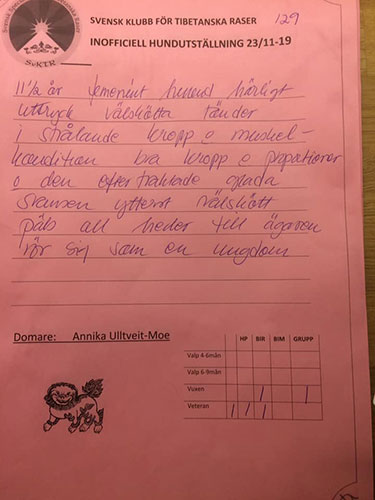 SVENSK KLUBB FÖR TIBETANSKA RASER 129
INOFFICIELL HUNDUTSTÄLLNING 23/11-19
SvKTR
11½ år feminint huvud härligt
uttryck välskötta tänder
i strålande kropp o muskel-
kondition bra kropp o propotioner
o den eftertraktade glada
svansen ytterst välskött
päls all heder till ägaren
rör sig som en ungdom
Domare: Annika Ulltveit-Moe
HP BIR BIM GRUPP
Valp 4-6mån
Valp 6-9mån
Vuxen / /
Veteran / / /